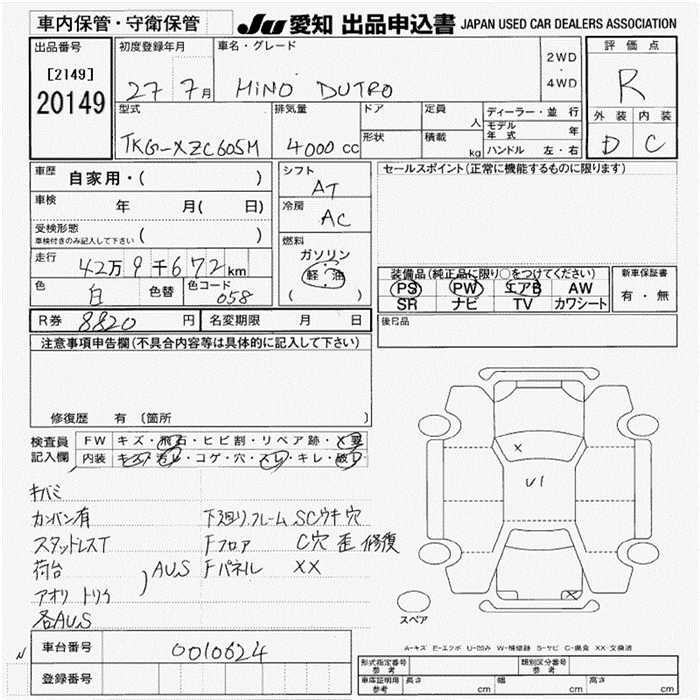 車内保管・守衛保管
JU 愛知 出品申込書 JAPAN USED CAR DEALERS ASSOCIATION
出品番号
[2149]
20149
初度登録年月
27 7月
車名・グレード
HINO DUTRO
2WD
・
4WD
評価点
R
外装 内装
D C
型式
TKG-XZC605M
排気量
4000 cc
ドア
形状
定員
人
積載
kg
ディーラー・並行
モデル年式 年
ハンドル 左・右
車歴 自家用・( )
車検 年 月( 日)
受検形態
車検付きのみ記入して下さい ( )
走行 42万9千672km
色 白 色替 色コード 058
シフト
AT
冷房
AC
燃料
ガソリン
軽油
( )
セールスポイント(正常に機能するものに限ります)
装備品(純正品に限り○をつけてください)
PS PW エアB AW
SR ナビ TV カワシート
新車保証書
有・無
R券 8820 円 名変期限 月 日
後日品
注意事項申告欄(不具合内容等は具体的に記入して下さい)
修復歴 有 (箇所
検査員記入欄
FW キズ・飛石・ヒビ割・リペア跡・X要
内装 キズ・汚レ・コゲ・穴・スレ・キレ・破レ
キバミ
カンバン有
スタッドレスT
荷台
アオリ トリイ
AUS
各AUS
下廻リ.フレーム SCウキ穴
Fフロア C穴 歪 修復
Fパネル XX
X
U1
X
スペア
A-キズ E-エクボ U-凹み W-補修跡 S-サビ C-腐食 XX 交換済
N
車台番号 0010624
登録番号
形式指定番号
参考
類別区分番号
参考
車庫証明用
参考
長さ cm 幅 cm 高さ cm